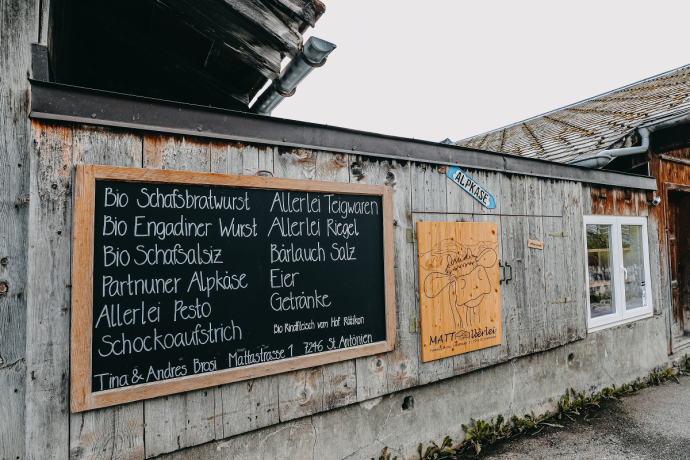 Bio Schafsbratwurst
Bio Engadiner Wurst
Bio Schafsalsiz
Partnuner Alpkäse
Allerlei Pesto
Schockoaufstrich
Allerlei Teigwaren
Allerlei Riegel
Bärlauch Salz
Eier
Getränke
Bio Rindfleisch vom Hof Rätikon
Tina & Andres Brosi Mattastrasse 1 7246 St. Antönien
ALPKÄSE
MATT llerlei